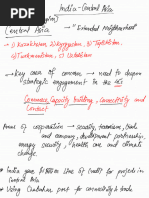 India - Central Asia
Central Asia → "Extended neighbourhood"
→ 1) Kazakhstan, 2) Kyrgyzstan, 3) Tajikistan,
4) Turkmenistan, 5) Uzbekistan
→ Key area of concern → need to deepen
strategic engagement in the
Commerce, Capacity building, Connectivity and
Contact
Areas of cooperation → security, terrorism, trade
and economy, development partnership,
energy security, health
→ India gave $1 billion line of credit for projects in
Central Asia
→ Using Chabahar port for connectivity & trade